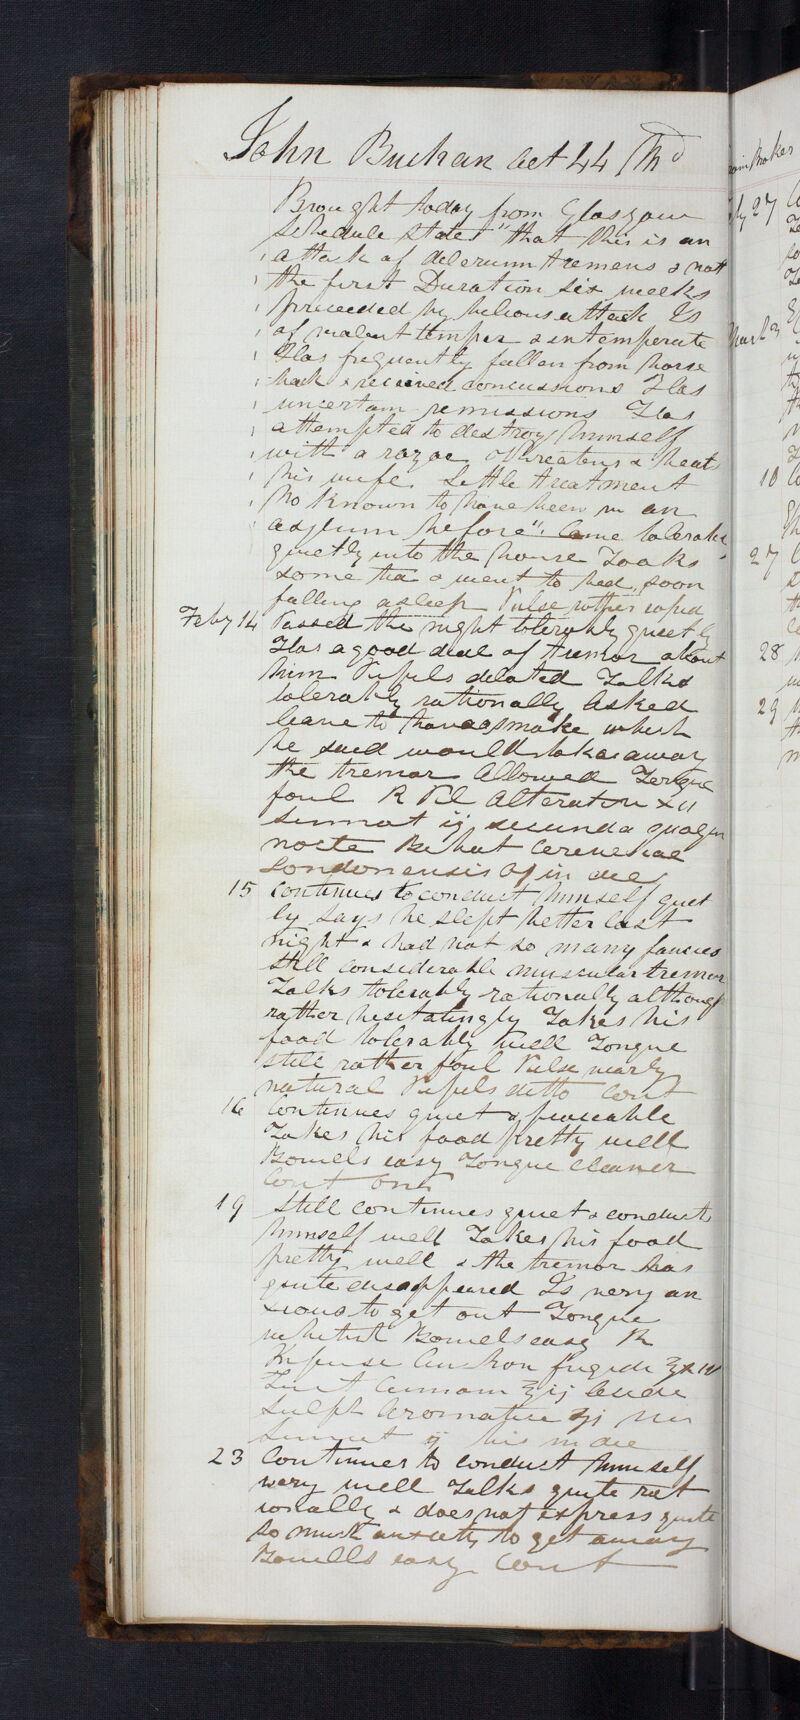 John Buchan aet 44 Md
Brought today from Glasgow
Schedule states "that this is an
attack of delerium tremens & not
the first Duration six weeks
preceeded by belious attack Is
of violent temper & intemperate
Has frequently fallen from horse
back & received concussions Has
uncertain remissions Has
attempted to destroy himself
with a razor Threatens & beats
his wife Little treatment
No known to have been in an
asylum before". Came tolerably
quietly into the house Took
some tea & went to bed soon
falling asleep Pulse rather rapid
Feby 14 Passed the night tolerably quietly
Has a good deal of tremor about
him Pupils delated Talks
tolerably rationally Asked
leave to have a smoke which
he said would take away
the tremor Allowed Tongue
foul R Pil Alterativ
Sumat ij secunda quaque
nocte Bibat Cerevisiae
Londonensis in die
15 Continues to conduct himself quiet
ly Says he slept better last
night & had not so many fancies
Still considerable muscular tremor
Talks tolerably rationally although
rather hesitatingly Takes his
food tolerably well Tongue
still rather foul Pulse nearly
natural Pupils ditto Cont
16 Continues quiet & peaceable
Takes his food pretty well
Bowels easy Tongue cleaner
Cont
19 Still continues quiet & conducts
himself well Takes his food
pretty well & the tremor has
quite disappeared Is very an
xious to get out Tongue
whitish Bowels easy R
Tinct Cinnam
Sulph Aromatic
Sumat bis in die
23 Continues to conduct himself
very well Talks quite rat
ionally & does not express quite
so much anxiety to get away
Bowells easy Cont
27
10
27
28
29